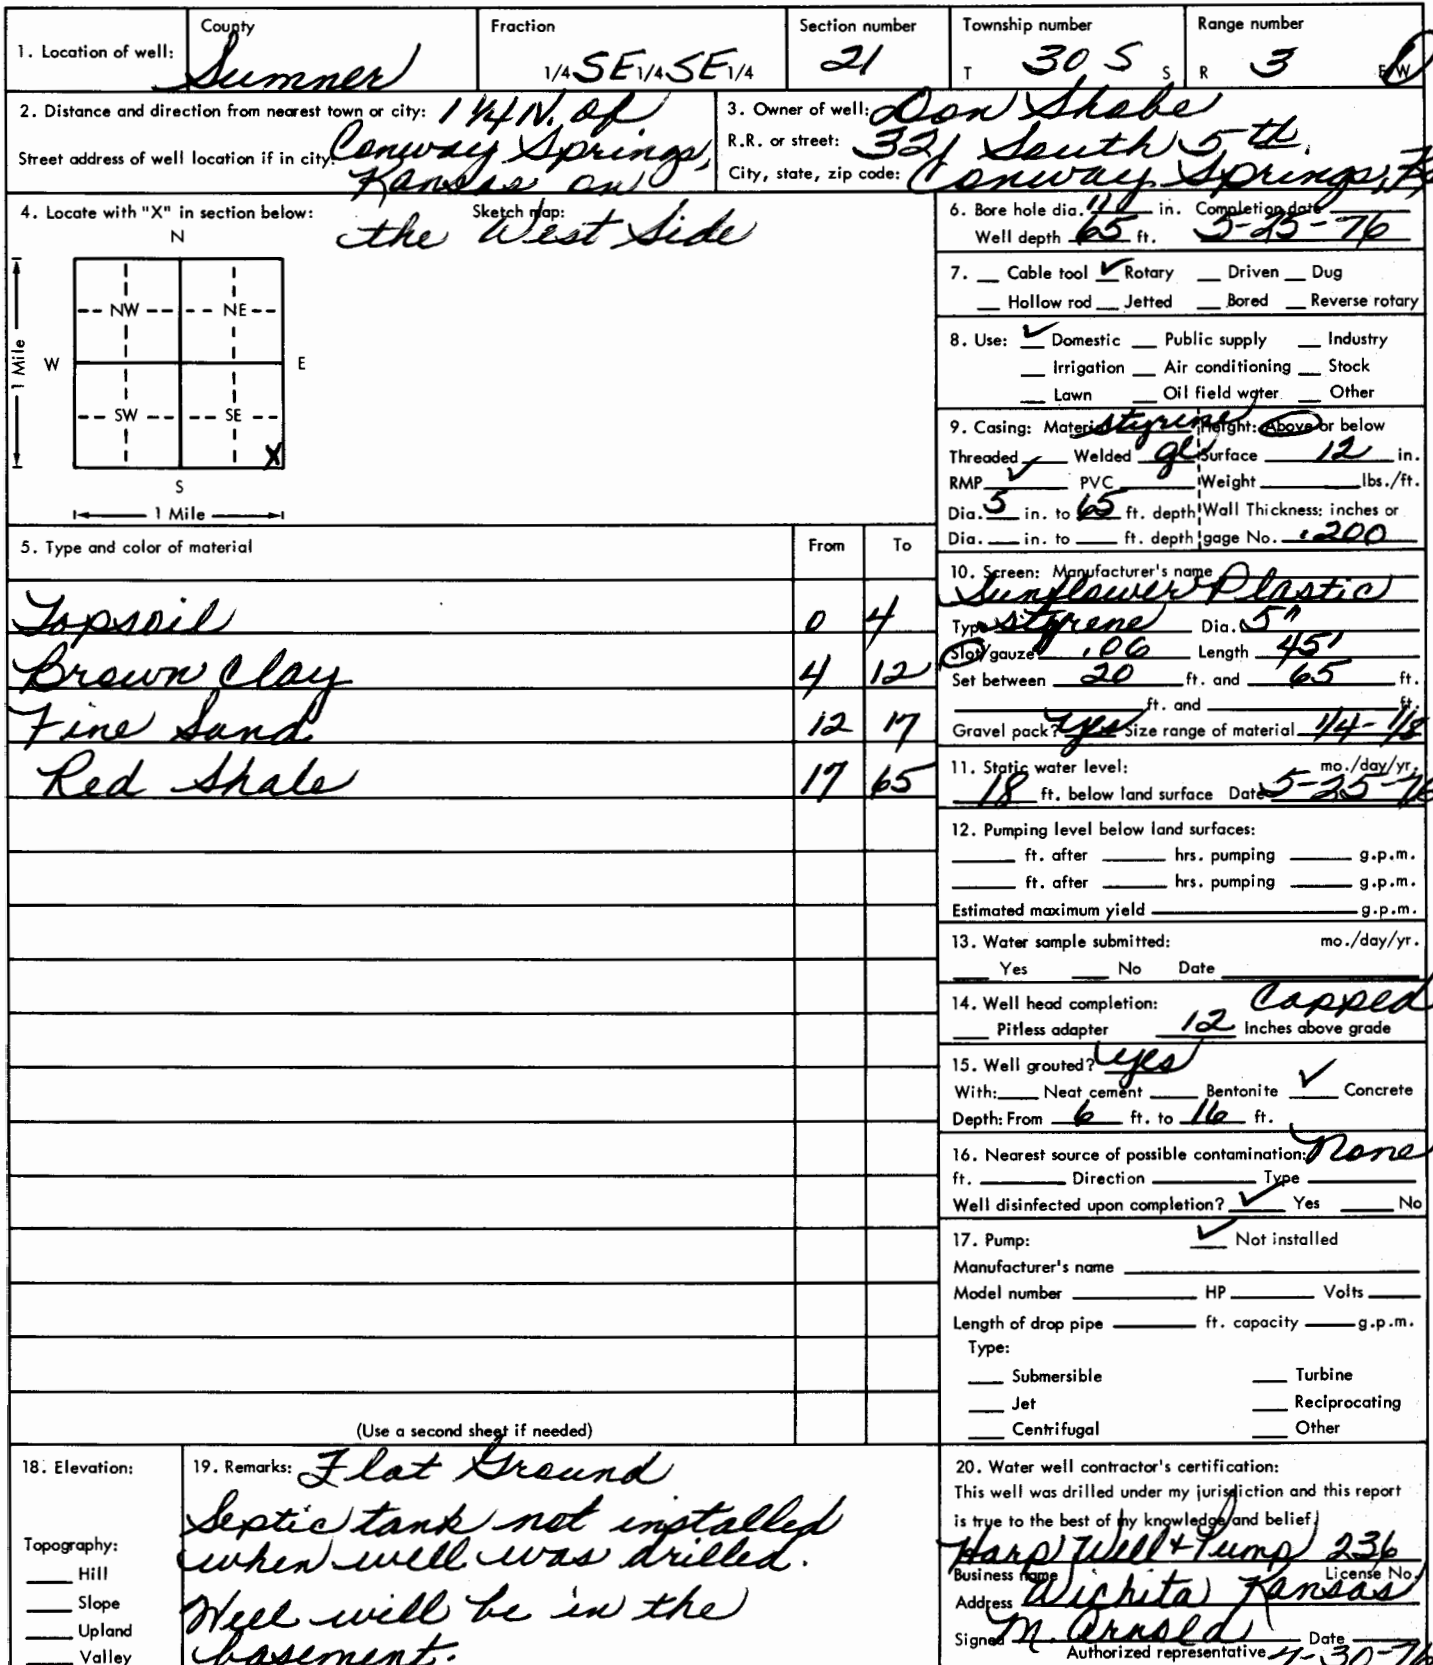 1. Location of well: County Sumner Fraction 1/4 SE 1/4 SE 1/4 Section number 21 Township number T 30 S S Range number R 3 E W
2. Distance and direction from nearest town or city: 1 1/4 N. of
Street address of well location if in city: Conway Springs,
Kansas on
the West Side
3. Owner of well: Don Shobe
R.R. or street: 321 South 5th.
City, state, zip code: Conway Springs,
4. Locate with "X" in section below: Sketch map:
N
NW NE
W E
SW SE
X
S
1 Mile
1 Mile
5. Type and color of material From To
Topsoil 0 4
Brown Clay 4 12
Fine Sand 12 17
Red Shale 17 65
(Use a second sheet if needed)
6. Bore hole dia. 11 in. Completion date
Well depth 65 ft. 5-25-76
7. Cable tool ✓ Rotary Driven Dug
Hollow rod Jetted Bored Reverse rotary
8. Use: ✓ Domestic Public supply Industry
Irrigation Air conditioning Stock
Lawn Oil field water Other
9. Casing: Material styrene Height: Above or below
Threaded Welded gl Surface 12 in.
RMP ✓ PVC Weight lbs./ft.
Dia. 5 in. to 65 ft. depth Wall Thickness: inches or
Dia. in. to ft. depth gage No. .200
10. Screen: Manufacturer's name
Sunflower Plastic
Type styrene Dia. 5"
Slot/gauze .06 Length 45'
Set between 20 ft. and 65 ft.
ft. and ft.
Gravel pack? yes Size range of material 1/4-1/8
11. Static water level: mo./day/yr.
18 ft. below land surface Date 5-25-76
12. Pumping level below land surfaces:
ft. after hrs. pumping g.p.m.
ft. after hrs. pumping g.p.m.
Estimated maximum yield g.p.m.
13. Water sample submitted: mo./day/yr.
Yes No Date
14. Well head completion: Capped
Pitless adapter 12 Inches above grade
15. Well grouted? yes
With: Neat cement Bentonite ✓ Concrete
Depth: From 6 ft. to 16 ft.
16. Nearest source of possible contamination: None
ft. Direction Type
Well disinfected upon completion? ✓ Yes No
17. Pump: ✓ Not installed
Manufacturer's name
Model number HP Volts
Length of drop pipe ft. capacity g.p.m.
Type:
Submersible Turbine
Jet Reciprocating
Centrifugal Other
18. Elevation:
Topography:
Hill
Slope
Upland
Valley
19. Remarks: Flat Ground
Septic tank not installed
when well was drilled.
Well will be in the
basement.
20. Water well contractor's certification:
This well was drilled under my jurisdiction and this report
is true to the best of my knowledge and belief.
Harp Well & Pump 236
Business name License No.
Address Wichita Kansas
Signed M. Arnold Date
Authorized representative -30-76